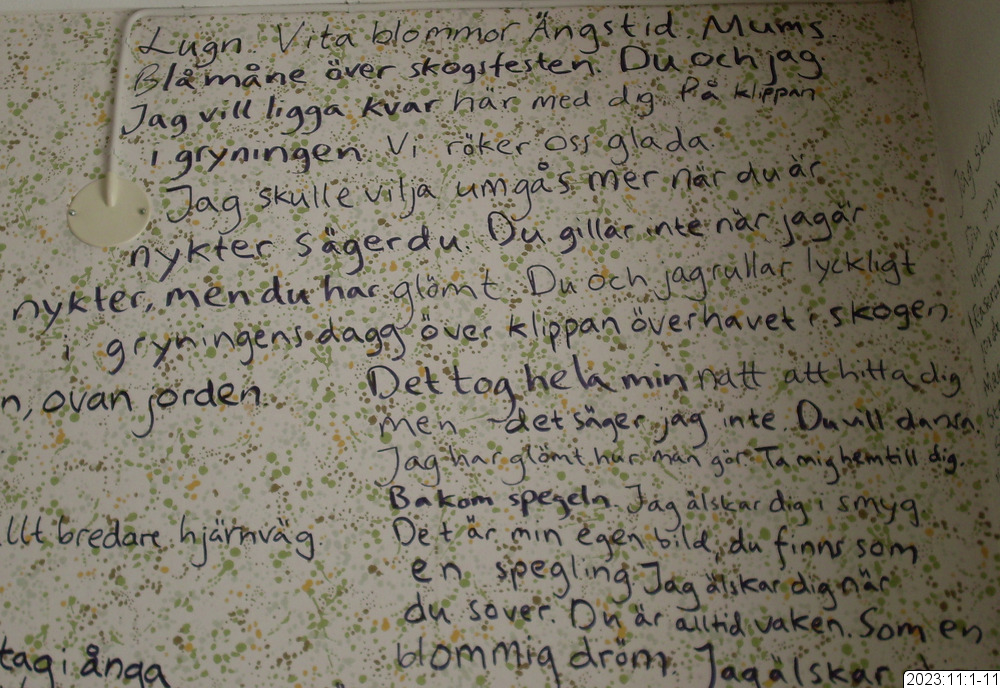 Lugn. Vita blommor Ängstid. Mums.
Blå måne över skogsfesten. Du och jag.
Jag vill ligga kvar här med dig. På klippan
i gryningen. Vi röker oss glada.
Jag skulle vilja umgås mer när du är
nykter säger du. Du gillar inte när jag är
nykter, men du har glömt. Du och jag rullar lyckligt
i gryningens dagg över klippan över havet i skogen
n, ovan jorden.
Det tog hela min natt att hitta dig
men det säger jag inte. Du vill dansa.
Jag har glömt hur man gör. Ta mig hem till dig.
Bakom spegeln. Jag älskar dig i smyg.
llt bredare hjärnväg
Det är min egen bild, du finns som
en spegling. Jag älskar dig när
du sover. Du är alltid vaken. Som en
tag i ånga
blommig dröm. Jag älskar
Jag skulle
2023:11:1-11